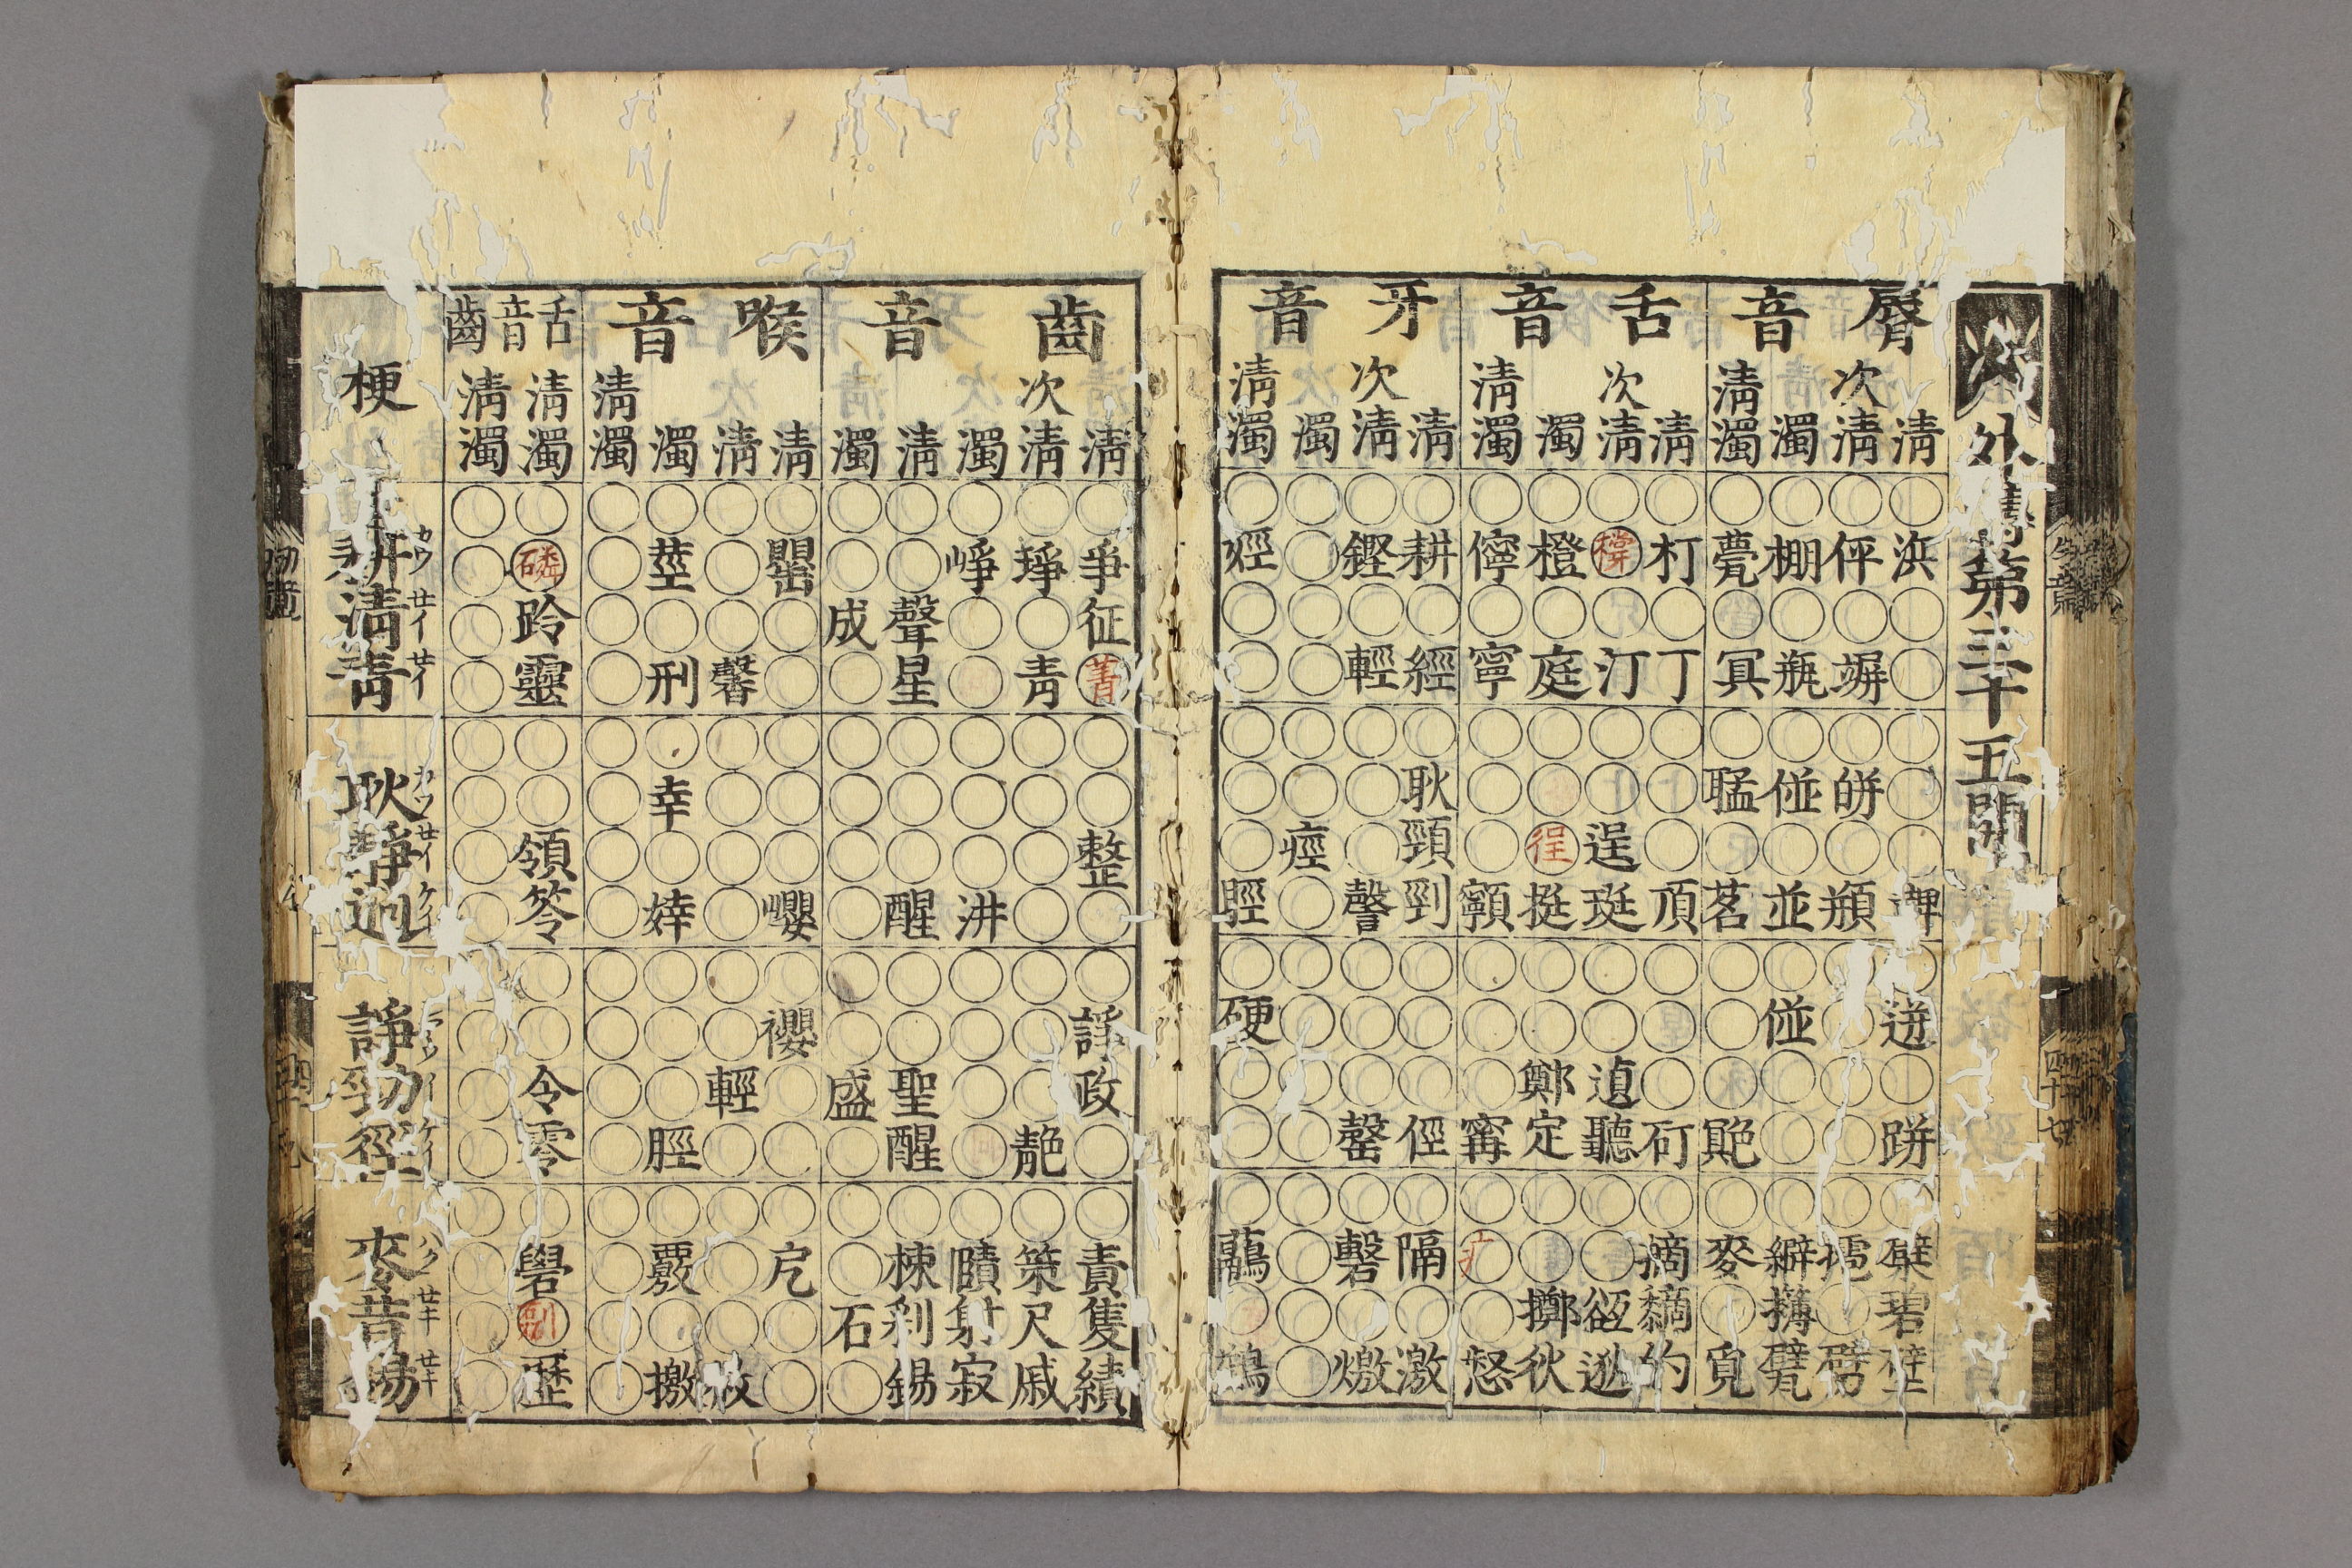 外轉第三十五開
脣音
清○浜○○○○○鞞○迸○跰○檗碧壁
次清○伻○竮○皏○頩○○○○○○劈
濁○棚○瓶○○並○○○○繴擗甓
清濁○甍○冥○○茗○○○○麥○覓
舌音
清○朾○丁○○○頂○○○矴○摘䵂的
次清○橕○汀○○逞珽○○遉聽○○逖
濁○橙○庭○○徎挺○○鄭定○○擲狄
清濁○儜○寧○○○顊○○○甯○疒○惄
牙音
清○耕○經○耿頸剄○○○徑○隔○激
次清○鏗○輕○○○謦○○○罄○礊○燩
濁○○○○○○痙○○○○○○○○○
清濁○娙○○○○○脛○硬○○○虉○鷁
齒音
清○爭征菁○○整○○諍政○○責隻績
次清○琤○青○○○○○○○靘○策尺戚
濁○崢○○○○○汫○○○○○賾射寂
清○○聲星○○○醒○○聖醒○棟釋錫
濁○○成○○○○○○○盛○○○石○
喉音
清○甖○○○○○巊○櫻○○○戹○○
清○○○馨○○○○○○輕○○○○赥
濁○莖○刑○幸○婞○○○脛○覈○檄
清濁○○○○○○○○○○○○○○○○
舌音齒
清濁○磷跉靈○○領笭○○令零○礐剔歷
清濁○○○○○○○○○○○○○○○○
梗耕清青耿靜迥諍勁徑麥昔錫
カウ サイ サイ カウ サイ ケイ